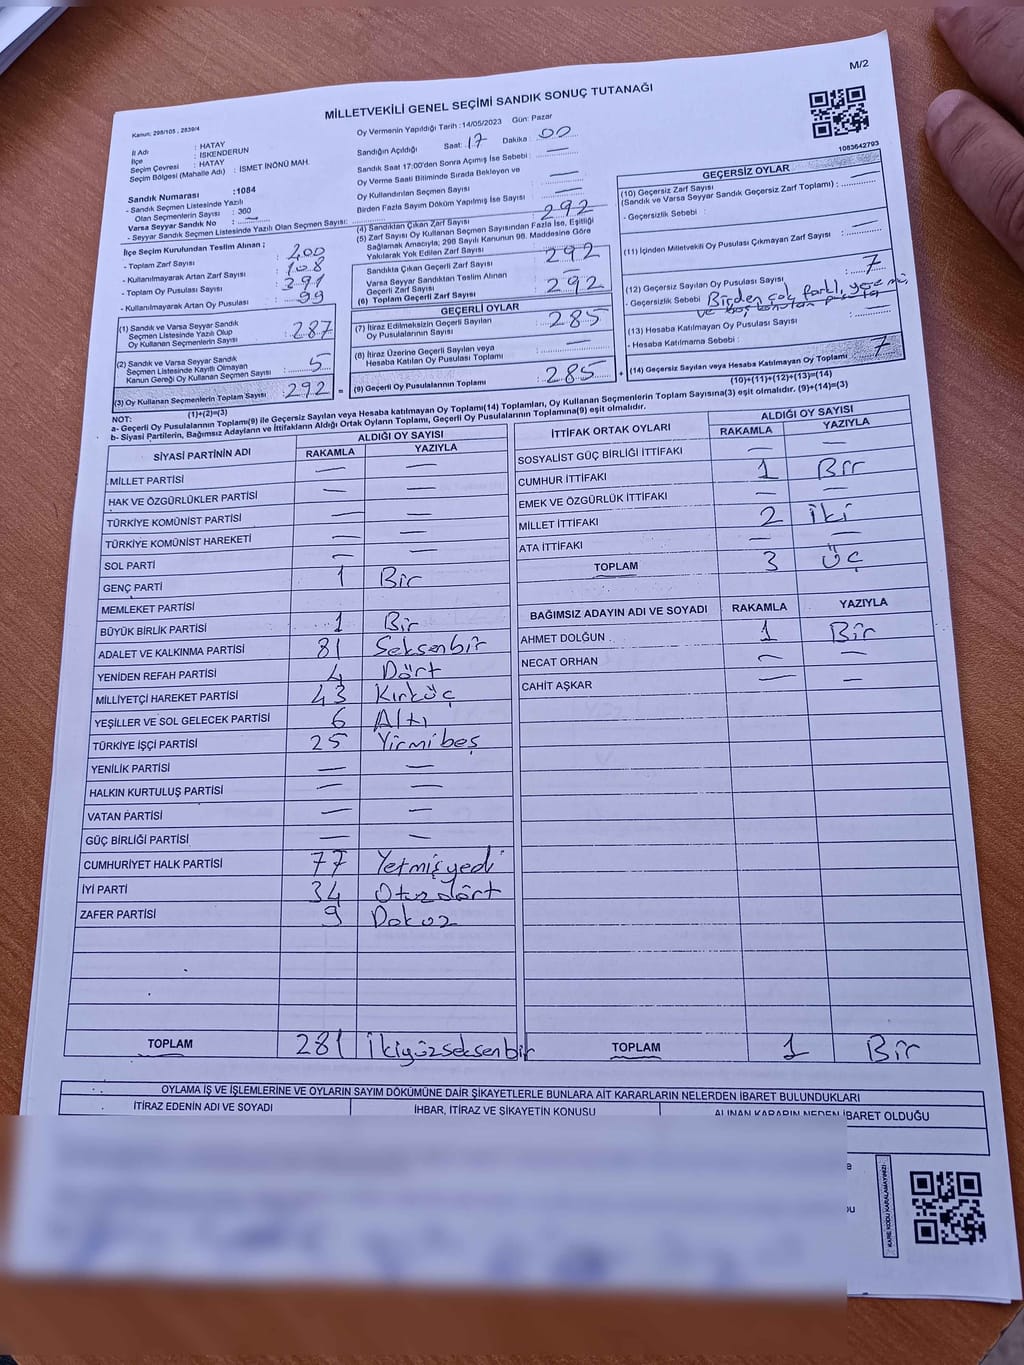 M/2
MİLLETVEKİLİ GENEL SEÇİMİ SANDIK SONUÇ TUTANAĞI
Kanun: 298/105, 2839/4
İl Adı : HATAY
İlçe : İSKENDERUN
Seçim Çevresi : HATAY
Seçim Bölgesi (Mahalle Adı) : İSMET İNÖNÜ MAH.
Sandık Numarası :1084
- Sandık Seçmen Listesinde Yazılı
Olan Seçmenlerin Sayısı : 360
Varsa Seyyar Sandık No :
- Seyyar Sandık Seçmen Listesinde Yazılı Olan Seçmen Sayısı:
Oy Vermenin Yapıldığı Tarih :14/05/2023 Gün: Pazar
Sandığın Açıldığı Saat: 17 Dakika : 00
Sandık Saat 17:00'den Sonra Açımış İse Sebebi : —
Oy Verme Saati Bitiminde Sırada Bekleyen ve
Oy Kullandırılan Seçmen Sayısı —
Birden Fazla Sayım Döküm Yapılmış İse Sayısı : —
1083642793
İlçe Seçim Kurulundan Teslim Alınan ;
- Toplam Zarf Sayısı : 400
- Kullanılmayarak Artan Zarf Sayısı : 108
- Toplam Oy Pusulası Sayısı : 391
- Kullanılmayarak Artan Oy Pusulası : 99
(1) Sandık ve Varsa Seyyar Sandık
Seçmen Listesinde Yazılı Olup
Oy Kullanan Seçmenlerin Sayısı : 287
(2) Sandık ve Varsa Seyyar Sandık
Seçmen Listesinde Kayıtlı Olmayan
Kanun Gereği Oy Kullanan Seçmen Sayısı : 5
(3) Oy Kullanan Seçmenlerin Toplam Sayısı : 292
(1)+(2)=(3)
(4) Sandıktan Çıkan Zarf Sayısı : 292
(5) Zarf Sayısı Oy Kullanan Seçmen Sayısından Fazla İse, Eşitliği
Sağlamak Amacıyla; 298 Sayılı Kanunun 98. Maddesine Göre
Yakılarak Yok Edilen Zarf Sayısı : —
Sandıkta Çıkan Geçerli Zarf Sayısı : 292
Varsa Seyyar Sandıktan Teslim Alınan
Geçerli Zarf Sayısı : —
(6) Toplam Geçerli Zarf Sayısı : 292
GEÇERLİ OYLAR
(7) İtiraz Edilmeksizin Geçerli Sayılan
Oy Pusulalarının Sayısı : 285
(8) İtiraz Üzerine Geçerli Sayılan veya
Hesaba Katılan Oy Pusulası Toplamı : —
= (9) Geçerli Oy Pusulalarının Toplamı : 285
GEÇERSİZ OYLAR
(10) Geçersiz Zarf Sayısı
(Sandık ve Varsa Seyyar Sandık Geçersiz Zarf Toplamı) : —
- Geçersizlik Sebebi :
(11) İçinden Milletvekili Oy Pusulası Çıkmayan Zarf Sayısı : —
(12) Geçersiz Sayılan Oy Pusulası Sayısı : 7
- Geçersizlik Sebebi : Birden çok partili,
ve boş
(13) Hesaba Katılmayan Oy Pusulası Sayısı :
- Hesaba Katılmama Sebebi :
+ (14) Geçersiz Sayılan veya Hesaba Katılmayan Oy Toplamı : 7
(10)+(11)+(12)+(13)=(14)
NOT:
a- Geçerli Oy Pusulalarının Toplamı(9) ile Geçersiz Sayılan veya Hesaba katılmayan Oy Toplamı(14) Toplamları, Oy Kullanan Seçmenlerin Toplam Sayısına(3) eşit olmalıdır. (9)+(14)=(3)
b- Siyasi Partilerin, Bağımsız Adayların ve İttifakların Aldığı Ortak Oyların Toplamı, Geçerli Oy Pusulalarının Toplamına(9) eşit olmalıdır.
SİYASİ PARTİNİN ADI ALDIĞI OY SAYISI
RAKAMLA YAZIYLA
MİLLET PARTİSİ — —
HAK VE ÖZGÜRLÜKLER PARTİSİ — —
TÜRKİYE KOMÜNİST PARTİSİ — —
TÜRKİYE KOMÜNİST HAREKETİ — —
SOL PARTİ — —
GENÇ PARTİ 1 Bir
MEMLEKET PARTİSİ
BÜYÜK BİRLİK PARTİSİ 1 Bir
ADALET VE KALKINMA PARTİSİ 81 Seksenbir
YENİDEN REFAH PARTİSİ 4 Dört
MİLLİYETÇİ HAREKET PARTİSİ 43 Kırküç
YEŞİLLER VE SOL GELECEK PARTİSİ 6 Altı
TÜRKİYE İŞÇİ PARTİSİ 25 Yirmibeş
YENİLİK PARTİSİ — —
HALKIN KURTULUŞ PARTİSİ — —
VATAN PARTİSİ — —
GÜÇ BİRLİĞİ PARTİSİ — —
CUMHURİYET HALK PARTİSİ 77 Yetmişyedi
İYİ PARTİ 34 Otuzdört
ZAFER PARTİSİ 9 Dokuz
TOPLAM 281 İkiyüzseksenbir
İTTİFAK ORTAK OYLARI ALDIĞI OY SAYISI
RAKAMLA YAZIYLA
SOSYALİST GÜÇ BİRLİĞİ İTTİFAKI — —
CUMHUR İTTİFAKI 1 Bir
EMEK VE ÖZGÜRLÜK İTTİFAKI — —
MİLLET İTTİFAKI 2 İki
ATA İTTİFAKI — —
TOPLAM 3 Üç
BAĞIMSIZ ADAYIN ADI VE SOYADI RAKAMLA YAZIYLA
AHMET DOLĞUN 1 Bir
NECAT ORHAN — —
CAHİT AŞKAR — —
TOPLAM 1 Bir
OYLAMA İŞ VE İŞLEMLERİNE VE OYLARIN SAYIM DÖKÜMÜNE DAİR ŞİKAYETLERLE BUNLARA AİT KARARLARIN NELERDEN İBARET BULUNDUKLARI
İTİRAZ EDENİN ADI VE SOYADI İHBAR, İTİRAZ VE ŞİKAYETİN KONUSU ALINAN KARARIN NEDEN İBARET OLDUĞU
KARE KODU KARALAMAYINIZ!